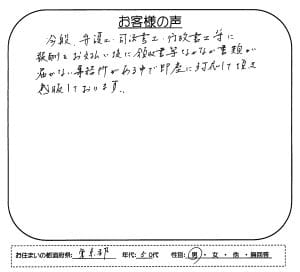 お客様の声
今般、弁護士・司法書士・行政書士等に
報酬をお支払い後に領収書等なかなか書類が
届かない事務所がある中で即座に対応して頂き
感服しております。
お住まいの都道府県: 東京都 年代: 50代 性別: 男・女・他・無回答